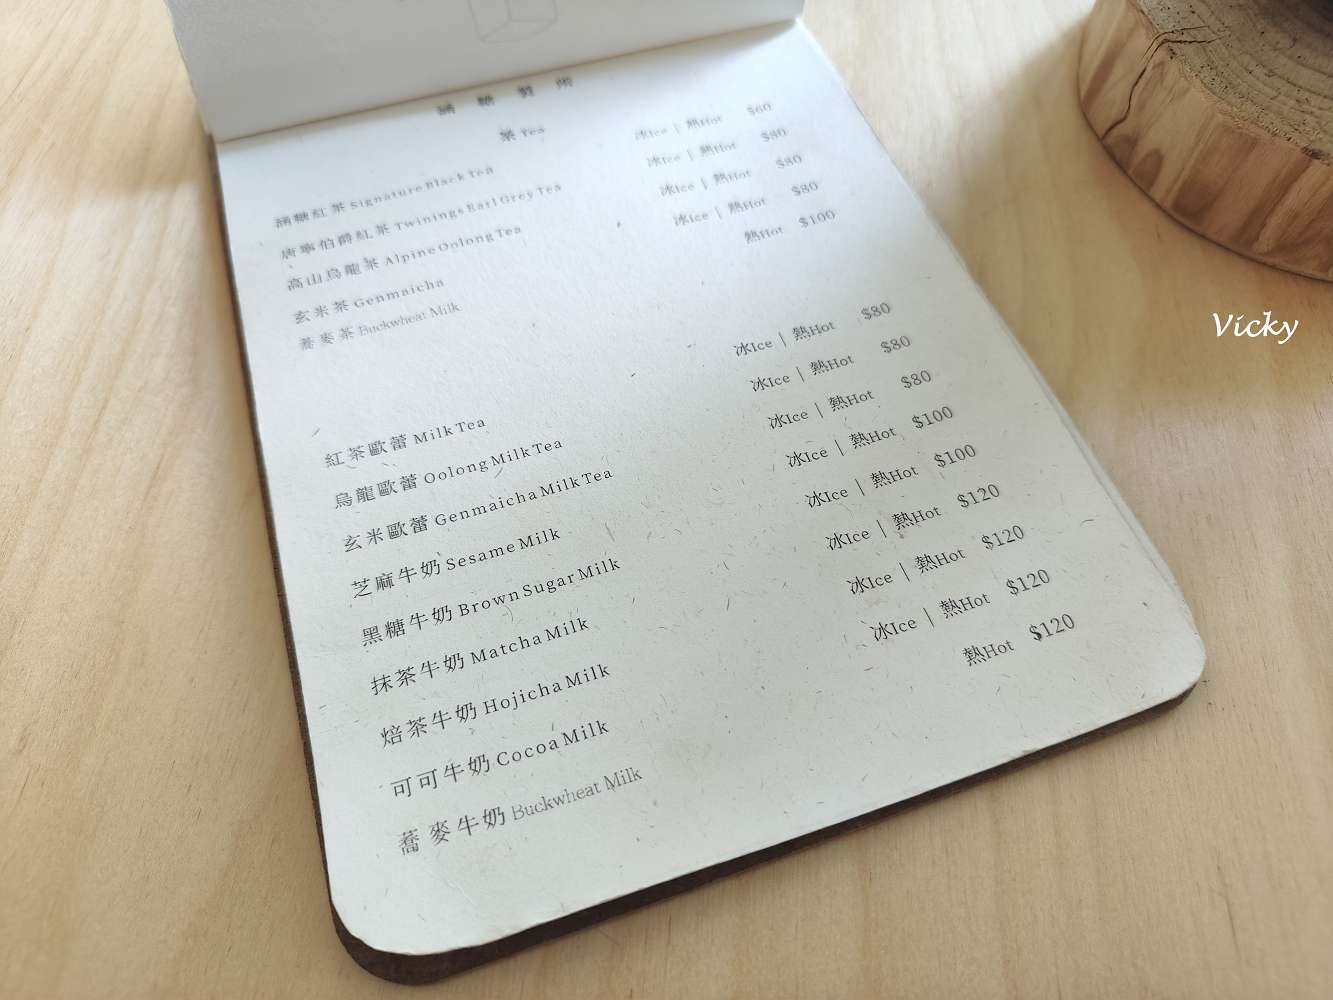 涵糖製所
茶 Tea
涵糖紅茶 Signature Black Tea 冰Ice | 熱Hot $60
唐寧伯爵紅茶 Twinings Earl Grey Tea 冰Ice | 熱Hot $80
高山烏龍茶 Alpine Oolong Tea 冰Ice | 熱Hot $80
玄米茶 Genmaicha 冰Ice | 熱Hot $80
蕎麥茶 Buckwheat Milk 熱Hot $100
紅茶歐蕾 Milk Tea 冰Ice | 熱Hot $80
烏龍歐蕾 Oolong Milk Tea 冰Ice | 熱Hot $80
玄米歐蕾 Genmaicha Milk Tea 冰Ice | 熱Hot $80
芝麻牛奶 Sesame Milk 冰Ice | 熱Hot $100
黑糖牛奶 Brown Sugar Milk 冰Ice | 熱Hot $100
抹茶牛奶 Matcha Milk 冰Ice | 熱Hot $120
焙茶牛奶 Hojicha Milk 冰Ice | 熱Hot $120
可可牛奶 Cocoa Milk 冰Ice | 熱Hot $120
蕎麥牛奶 Buckwheat Milk 熱Hot $120
Vicky